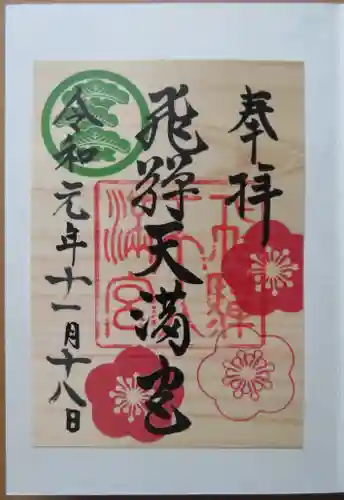 奉拝
飛騨天満宮
令和元年十一月十八日